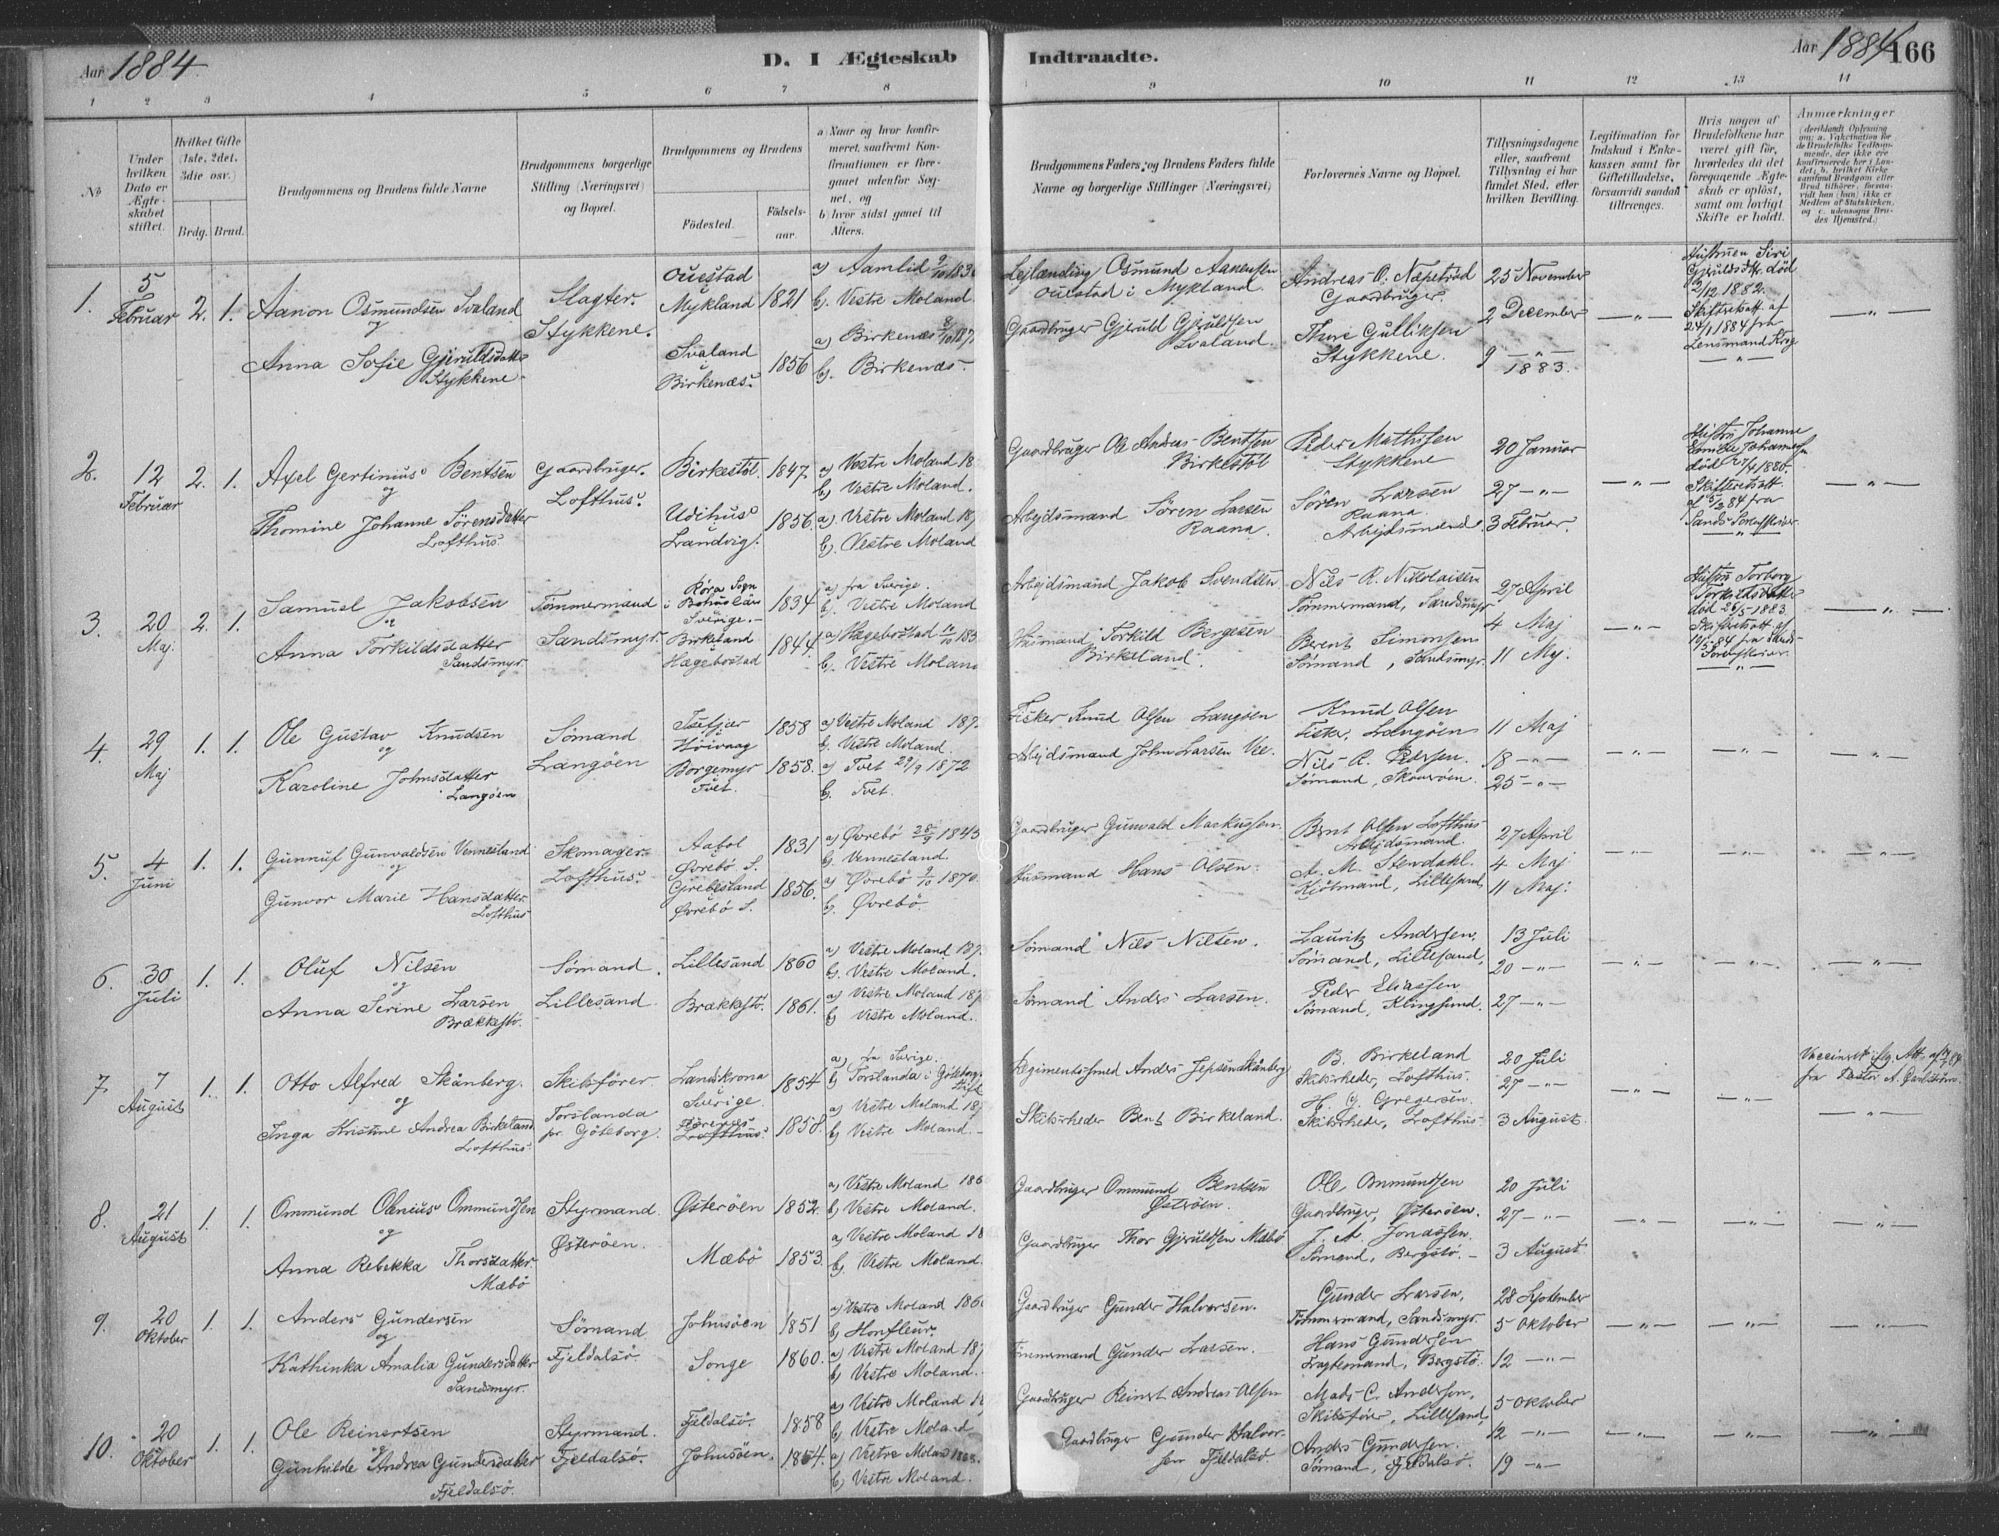 Aar 1884.
D. I Ægteskab
Indtraadte.
Aar 1884
166
1 2 3 4 5 6 7 8 9 10 11 12 13 14
No
Under hvilken Dato er Ægteskabet stiftet.
Hvilket Gifte (1ste, 2det, 3die osv.)
Brdg. Brud.
Brudgommens og Brudens fulde Navne
Brudgommens borgerlige Stilling (Næringsvei) og Bopæl.
Brudgommens og Brudens
Fødested.
Fødsels-aar.
a) Naar og hvor konfirmeret, saafremt Konfirmationen er foregaaet udenfor Sognet, og
b) hvor sidst gaaet til Alters.
Brudgommens Faders og Brudens Faders fulde Navne og borgerlige Stillinger (Næringsvei)
Forlovernes Navne og Bopæl.
Tillysningsdagene eller, saafremt Tillysning ei har fundet Sted, efter hvilken Bevilling.
Legitimation for Indskud i Enkekassen samt for Giftetilladelse, forsaavidt saadan tiltrænges.
Hvis nogen af Brudefolkene har været gift, hvorledes da det foregaaende Ægteskab er opløst, samt om lovligt Skifte er holdt.
Anmærkninger
1.
5 Februar
2. 1.
Aanon Osmundsen Svaland
og
Anna Sofie Gjeruldsdatter
Stykkene.
Slagter.
Stykkene.
Ouestad
i
Mykland 1821
Svaland
Birkenæs. 1856
a) Aamlid 9/10 183
b. Vestre Moland.
a) Birkenæs 8/10 187
b). Birkenæs.
Leilænding Osmund Aanensen
Ouestad i Mykland.
Gaardbruger Gjeruld Gjeruldsen
Svaland.
Andreas O. Næpstad
Gaardbruger
Thore Gulliksen
Stykkene.
25 November
2 December
9 —"—
1883.
—"—
Hustruen Siri
Gjeruldsdtr. død
2/12 1882.
Skifteretsatt. af
24/1 1884 fra
Lensmand Krog
—"—
—"—
2.
12 Februar
2. 1.
Axel Gertinius Bentsen
og
Thomine Johanne Sørensdatter
Lofthus.
Gaardbruger.
Lofthus.
Birkestøl. 1847.
Udihus
i
Landvig. 1856.
a) Vestre Moland 18
b) Vestre Moland.
a) Vestre Moland 18
b) Vestre Moland
Gaardbruger Ole Andreas Bentsen
Birkestøl
Arbejdsmand Søren Larsen
Raana.
Peder Mathisen
Stykkene
Søren Larsen
Raana.
Arbejdsmand.
20 Januar
27 —"—
3 Februar.
—"—
Hustru Johanne
død 27/4 1880.
Skifteretsatt
af 5/2 84 fra
Sands Sorenskriver.
—"—
—"—
3.
20 Maj.
2. 1.
Samuel Jakobsen
og
Anna Torkildsdatter
Sandsmyr.
Tømmermand
Sandsmyr.
Røra Sogn
i Bohuslän
Sverige. 1834
Birkeland
Hægebostad 1844.
a) fra Sverige.
b). Vestre Moland
a) Hægebostad 183
b. Vestre Moland
Arbejdsmand Jakob Svendsen
Husmand Torkild Bergesen
Birkeland.
Nils R. Nikolaisen
Tømmermand, Sandsmyr
Berent Simonsen
Sømand, Sandsmyr.
27 April
4 Maj
11 Maj.
—"—
Hustru Torborg
Torkildsdatter
død 26/5 1883.
Skifteretsatt af
19/5 84 fra Sands
Sorenskriver.
—"—
—"—
4.
29 Maj
1. 1.
Ole Gustav Knudsen
og
Karoline Johnsdatter
Langøen
Sømand
Langøen
Isefjær
Høivaag 1858
Borgemyr
Tvet. 1858.
a) Vestre Moland 187
b. Vestre Moland.
a) Tvet 29/9 1872
b. Tvet.
Fisker Knud Olsen Langøen
Arbejdsmand John Larsen Vee
Knud Olsen
Fisker, Langøen
Nils R. Pedersen.
Sømand, Skauerøen.
11 Maj
18 —"—
25 —"—
—"— —"— —"—
5.
4 Juni
1. 1.
Gunnuf Gunvaldsen Vennesland
og
Gunvor Marie Hansdatter
Lofthus
Skomager.
Lofthus.
Aafol
Øvrebø S. 1831
Grebesland
Øvrebø S. 1856.
a) Øvrebø 28/9 1845
b. Vennesland.
a) Øvrebø 2/10 1870.
b. Øvrebø.
Gaardbruger Gunvald Markussen.
Husmand Hans Olsen.
Bent Olsen Lofthus
Arbejdsmand.
A. M. Stendahl.
Kjøbmand, Lillesand,
27 April
4 Maj
11 Maj.
—"— —"— —"—
6.
30 Juli
1. 1.
Oluf Nilsen
og
Anna Serine Larsen
Brækkestø.
Sømand.
Lillesand.
Lillesand 1860
Brækkestø. 1861.
a) Vestre Moland 187
b. Vestre Moland.
a) Vestre Moland 187
b) Vestre Moland.
Sømand Nils Nilsen.
Sømand Anders Larsen.
Lauritz Andersen,
Sømand, Lillesand,
Peder Eliassen
Sømand, Klingsund.
13 Juli
20 —"—
27 —"—
—"— —"— —"—
7.
7 August
1. 1.
Otto Alfred Skånberg.
og
Inga Kristine Andrea Birkeland
Lofthus.
Skibsfører.
Torslanda
pr. Göteborg.
Landskrona
Sverige. 1854
Lofthus. 1858.
a) fra Sverige.
b) Torslanda i Göteborgs
Stift
a) Vestre Moland 187
b) Vestre Moland.
Regimentssmed Anders Jepsen Skånberg
Skibsrheder Bent Birkeland.
B. Birkeland
Skibsrheder, Lofthus.
H. G. Gregersen.
Skibsrheder, Lofthus
20 Juli
27 —"—
3 August.
—"— —"—
Vaccineret flg. Att. af
fra Pastor A. Carlström.
—"—
8.
21 August
1. 1.
Ommund Olenius Ommundsen
og
Anna Rebekka Thorsdatter
Mæbø
Styrmand.
Østerøen.
Østerøen 1852.
Mæbø 1853.
a) Vestre Moland 186
b) Vestre Moland.
a) Vestre Moland 18
b). Vestre Moland.
Gaardbruger Ommund Bentsen
Østerøen.
Gaardbruger Thor Gjeruldsen Mæbø
Ole Ommundsen
Gaardbruger, Østerøen.
J. A. Jonassen.
Sømand, Bergstø.
20 Juli
27 —"—
3 August
—"— —"— —"—
9.
20 Oktober
1. 1.
Anders Gundersen
og
Kathinka Amalia Gundersdatter
Sandsmyr.
Sømand
Fjeldalsø
Johnsøen 1851
Songe 1860.
a) Vestre Moland 186
b) Honfleur.
a) Vestre Moland 187
b) Vestre Moland.
Gaardbruger Gunder Halvorsen.
Tømmermand Gunder Larsen.
Gunder Larsen,
Tømmermand, Sandsmyr.
Hans Gundersen
Fragtemand, Bergstø.
28 September
5 Oktober
12 —"—
—"— —"— —"—
10.
20 Oktober
1. 1.
Ole Reinertsen
og
Gunhilde Andrea Gundersdatter
Fjeldalsø.
Styrmand.
Fjeldalsø.
Fjeldalsø. 1858
Johnsøen. 1864.
a) Vestre Moland 18
b) Vestre Moland.
a) Vestre Moland
b) Vestre Moland.
Gaardbruger Reinert Andreas Olsen
Gaardbruger Gunder Halvorsen
Fjeldalsø.
Mads C. Andersen,
Skibsfører, Lillesand,
Anders Gundersen.
Sømand, Fjeldalsø.
5 Oktober
12 —"—
19 —"—